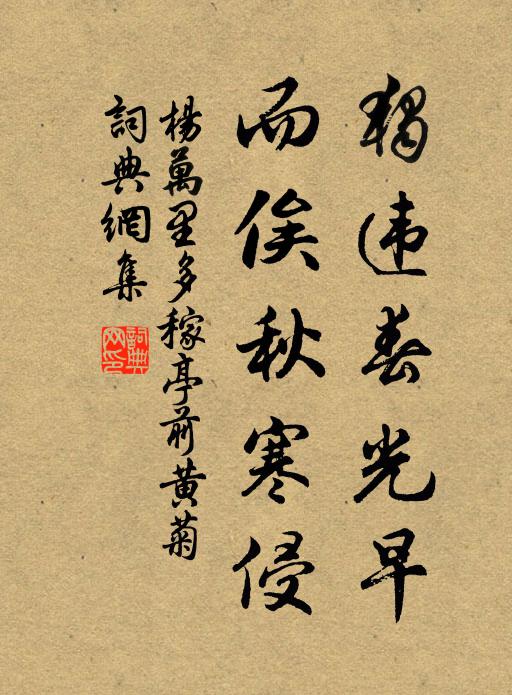 獨違春光早
而俟秋寒侵
楊萬里多稼亭前黃菊
詞典網集
詞典网印